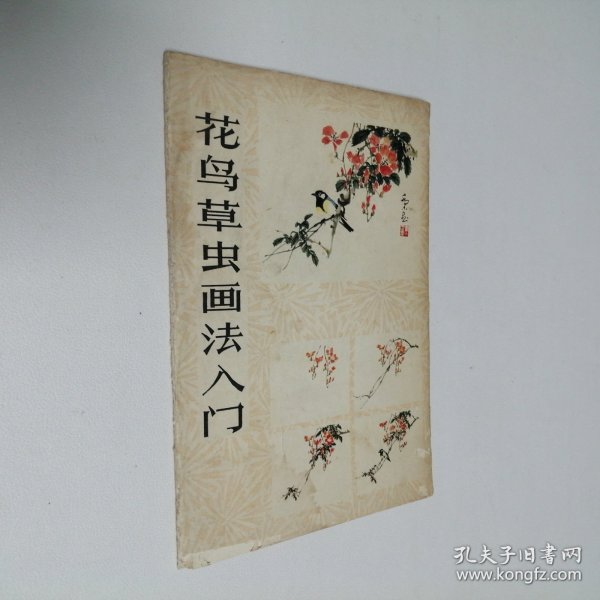 花鸟草虫画法入门
孔夫子旧書网
www.kongfz.com